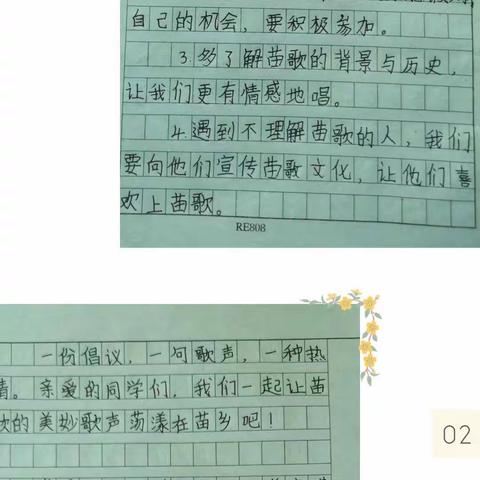 自己的机会，要积极参加。
3.多了解苗歌的背景与历史，
让我们更有情感地唱。
4.遇到不理解苗歌的人，我们
要向他们宣传苗歌文化，让他们喜
欢上苗歌。
RE808
一份倡议，一句歌声，一种热
情。亲爱的同学们，我们一起让苗
歌的美妙歌声荡漾在苗乡吧！
02